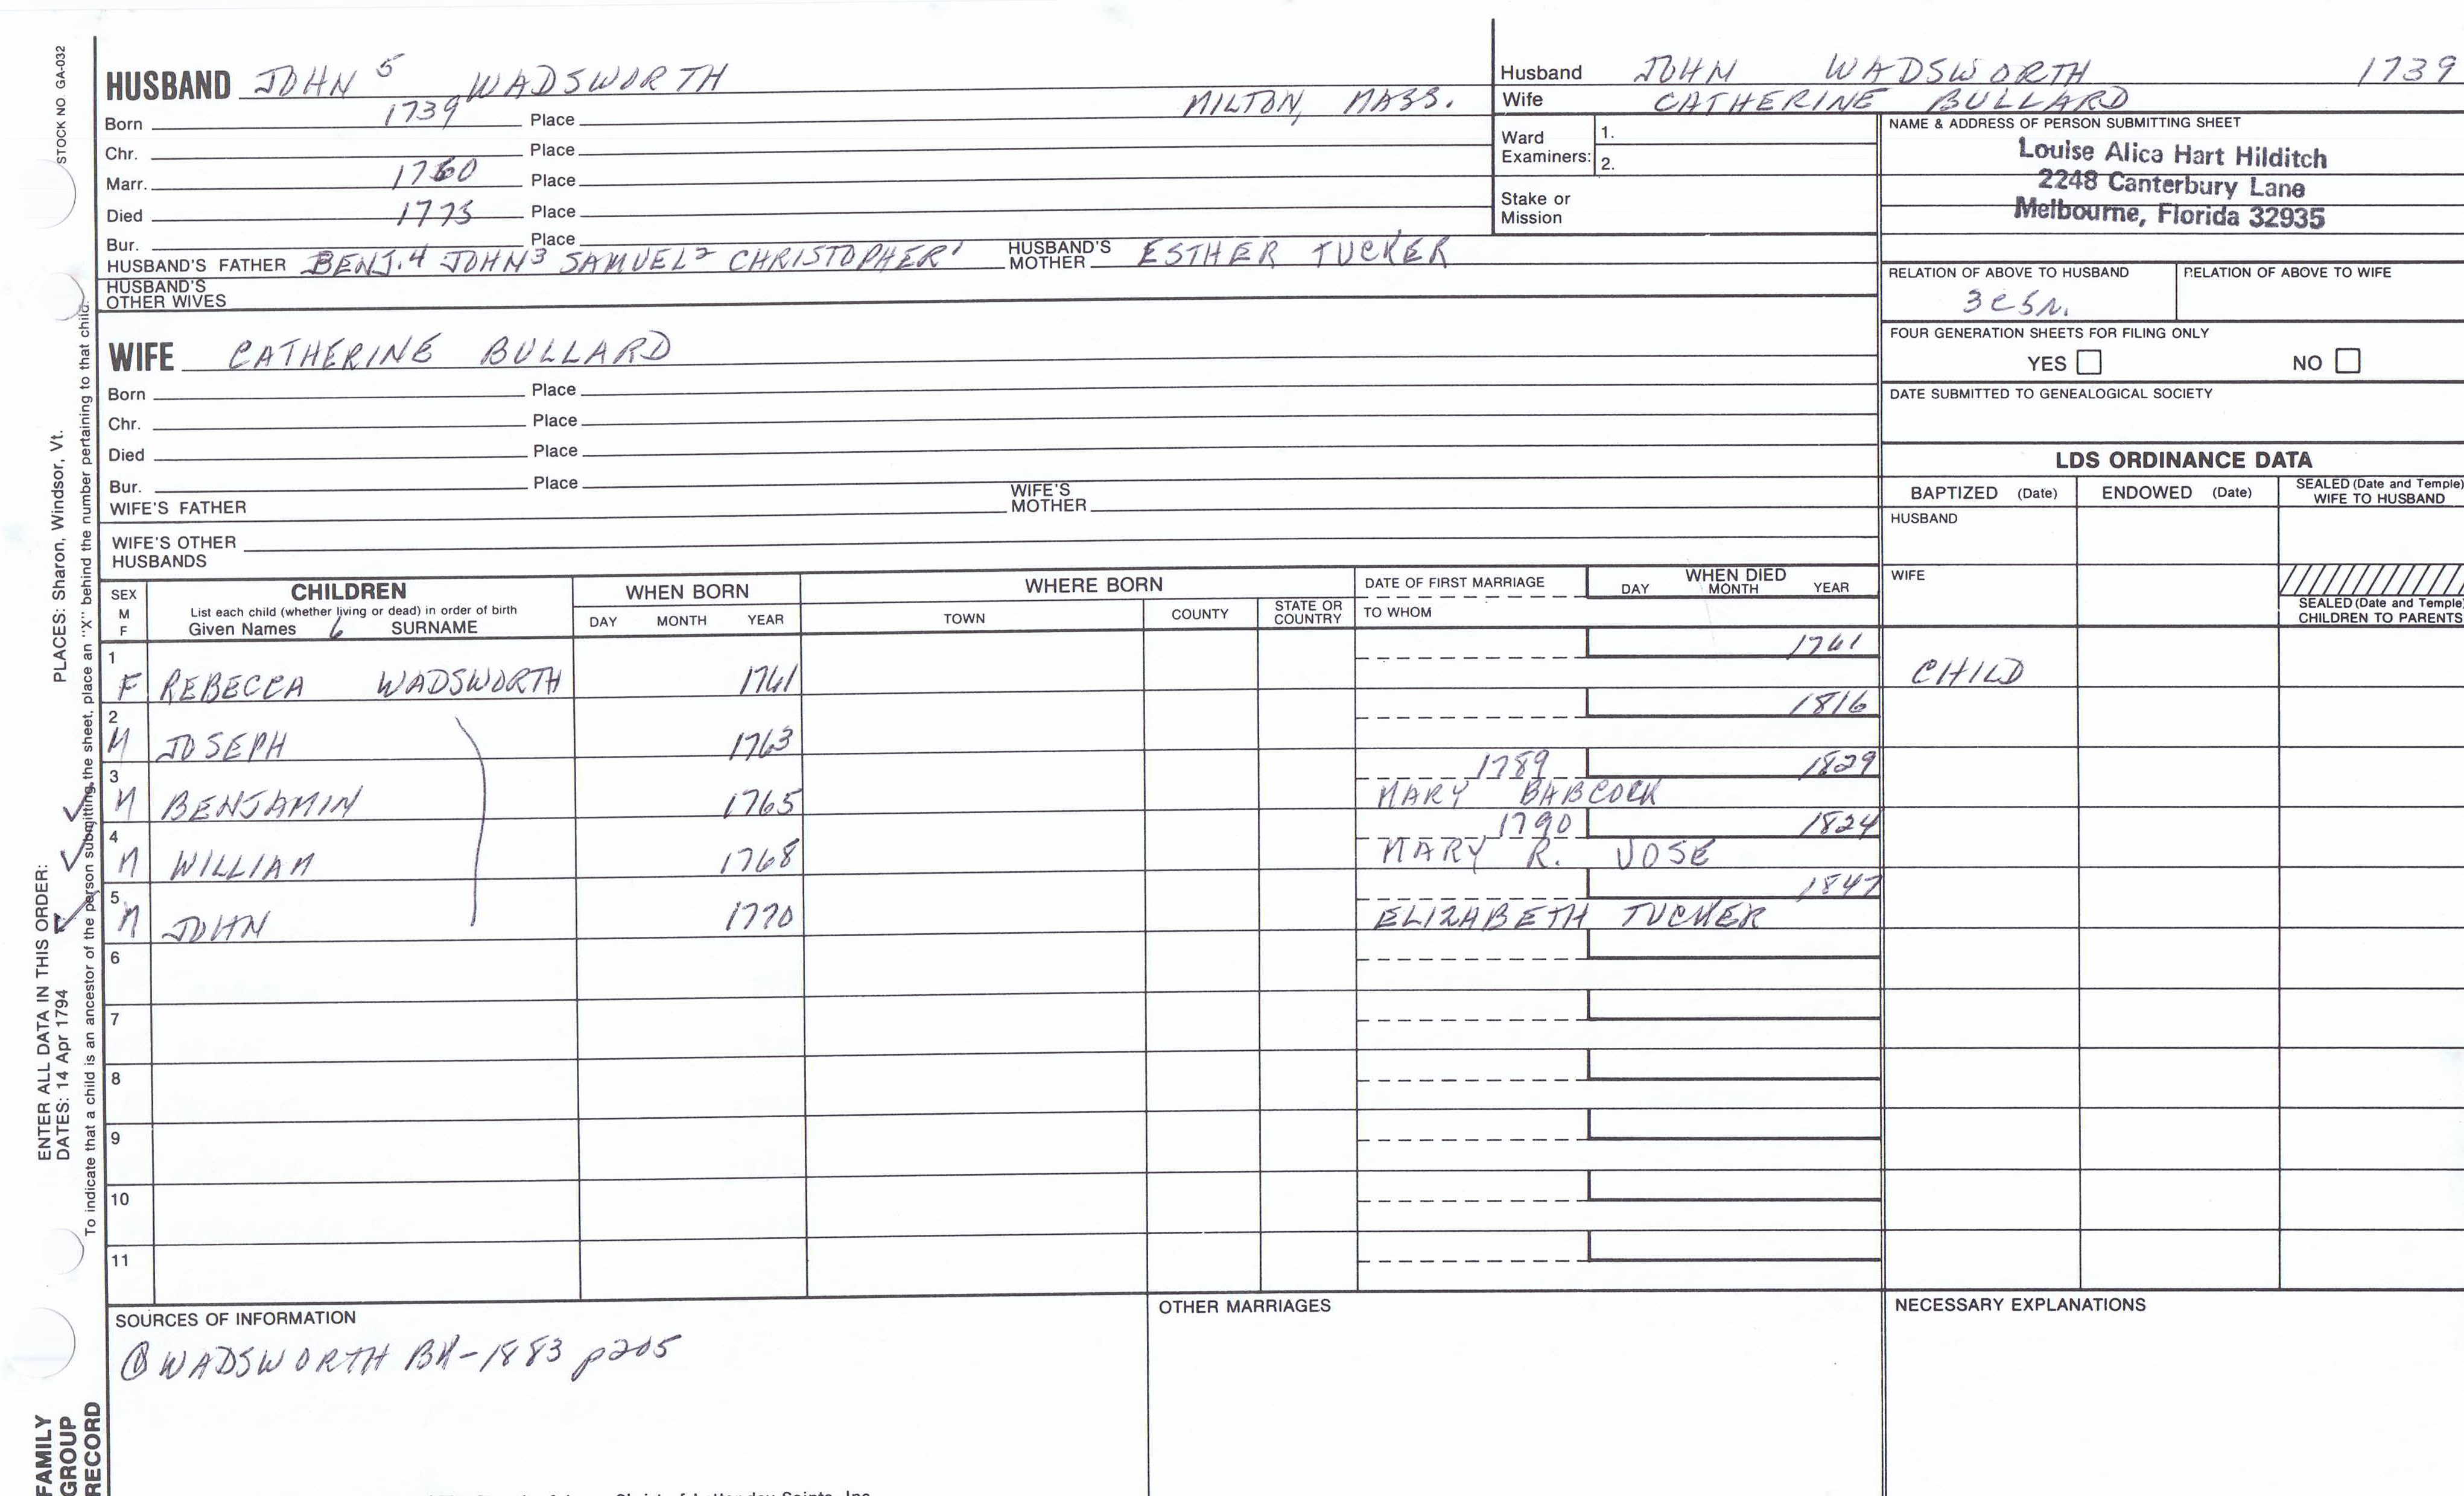 STOCK NO. GA-032
PLACES: Sharon, Windsor, Vt.
ENTER ALL DATA IN THIS ORDER:
DATES: 14 Apr 1794
To indicate that a child is an ancestor of the person submitting the sheet, place an "X" behind the number pertaining to that child.
FAMILY
GROUP
RECORD
HUSBAND JOHN 5 WADSWORTH
Born 1739 Place MILTON, MASS.
Chr. Place
Marr. 1760 Place
Died 1775 Place
Bur. Place
HUSBAND'S FATHER BENJ.4 JOHN3 SAMUEL2 CHRISTOPHER1 HUSBAND'S MOTHER ESTHER TUCKER
HUSBAND'S
OTHER WIVES
WIFE CATHERINE BULLARD
Born Place
Chr. Place
Died Place
Bur. Place
WIFE'S FATHER WIFE'S MOTHER
WIFE'S OTHER
HUSBANDS
Husband JOHN WADSWORTH 1739
Wife CATHERINE BULLARD
Ward
Examiners:
1.
2.
Stake or
Mission
NAME & ADDRESS OF PERSON SUBMITTING SHEET
Louise Alica Hart Hilditch
2248 Canterbury Lane
Melbourne, Florida 32935
RELATION OF ABOVE TO HUSBAND RELATION OF ABOVE TO WIFE
FOUR GENERATION SHEETS FOR FILING ONLY
YES NO
DATE SUBMITTED TO GENEALOGICAL SOCIETY
LDS ORDINANCE DATA
BAPTIZED (Date) ENDOWED (Date) SEALED (Date and Temple) WIFE TO HUSBAND
HUSBAND
WIFE
SEALED (Date and Temple)
CHILDREN TO PARENTS
SEX
M
F
CHILDREN
List each child (whether living or dead) in order of birth
Given Names 6 SURNAME
WHEN BORN
DAY MONTH YEAR
WHERE BORN
TOWN COUNTY STATE OR COUNTRY
DATE OF FIRST MARRIAGE
TO WHOM
WHEN DIED
DAY MONTH YEAR
1 1761
F REBECCA WADSWORTH 1761 CHILD
2 1816
M JOSEPH 1763
3 1789 1829
M BENJAMIN 1765 MARY BABCOCK
4 1790 1824
M WILLIAM 1768 MARY R. VOSE
5 1847
M JOHN 1770 ELIZABETH TUCKER
6
7
8
9
10
11
SOURCES OF INFORMATION
WADSWORTH BK-1883 p205
OTHER MARRIAGES
NECESSARY EXPLANATIONS